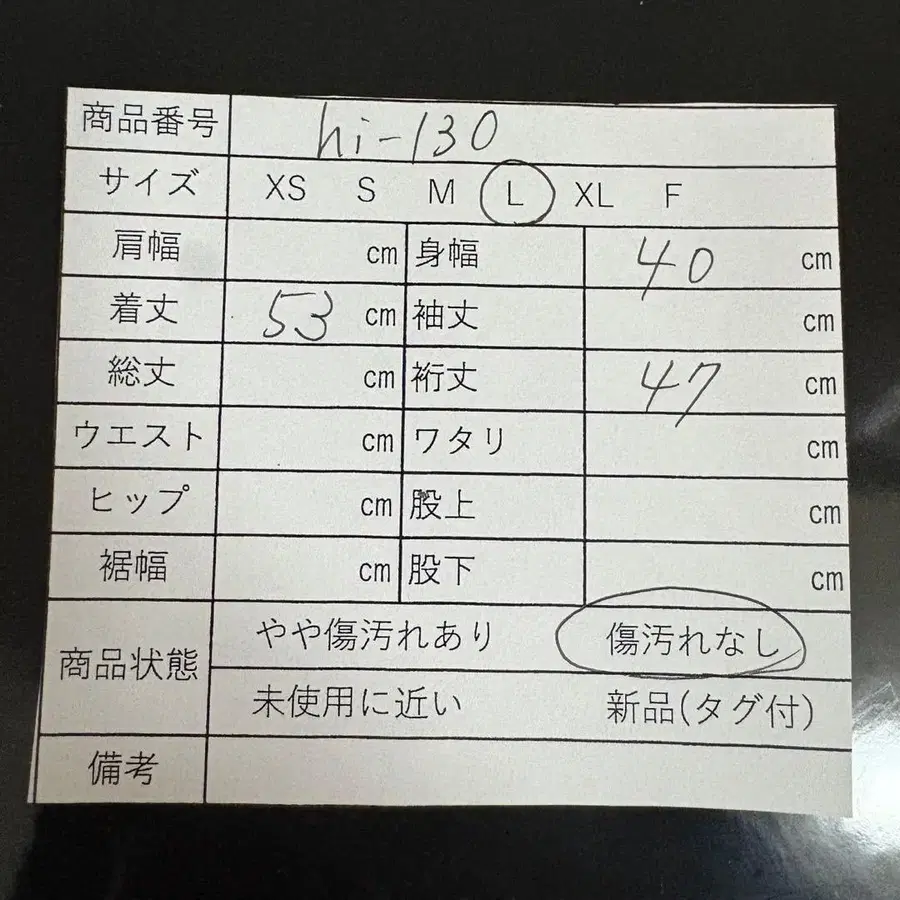 商品番号 hi-130
サイズ XS S M L XL F
肩幅 cm 身幅 40 cm
着丈 53 cm 袖丈 cm
総丈 cm 裄丈 47 cm
ウエスト cm ワタリ cm
ヒップ cm 股上 cm
裾幅 cm 股下 cm
商品状態 やや傷汚れあり 傷汚れなし
未使用に近い 新品(タグ付)
備考